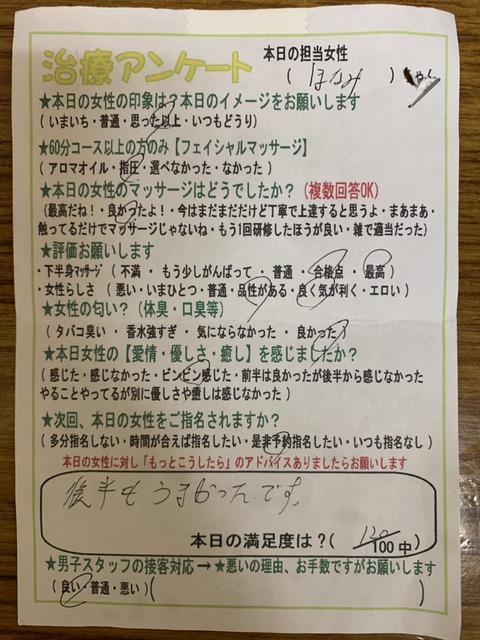 治療アンケート
本日の担当女性
( ほなみ )
★本日の女性の印象は?本日のイメージをお願いします
(いまいち・普通・思った以上・いつもどうり)
★60分コース以上の方のみ【フェイシャルマッサージ】
(アロマオイル・指圧・選べなかった・なかった)
★本日の女性のマッサージはどうでしたか?(複数回答OK)
(最高だね!・良かったよ!・今はまだまだだけど丁寧で上達すると思うよ・まあまあ・
触ってるだけでマッサージじゃないね・もう1回研修したほうが良い・雑で適当だった)
★評価お願いします
・下半身マッサージ (不満 ・ もう少しがんばって ・ 普通 ・ 合格点 ・ 最高)
・女性らしさ (悪い・いまひとつ・普通・品性がある・良く気が利く・エロい)
★女性の匂い?(体臭・口臭等)
(タバコ臭い ・ 香水強すぎ ・ 気にならなかった ・ 良かった)
★本日女性の【愛情・優しさ・癒し】を感じましたか?
(感じた・感じなかった・ビンビン感じた・前半は良かったが後半から感じなかった
やることやってるが別に優しさや癒しは感じなかった)
★次回、本日の女性をご指名されますか?
(多分指名しない・時間が合えば指名したい・是非予約指名したい・いつも指名なし)
本日の女性に対し「もっとこうしたら」のアドバイスありましたらお願いします
後半もうまかったです。
本日の満足度は?( 120
100中)
★男子スタッフの接客対応→★悪いの理由、お手数ですがお願いします
(良い・普通・悪い)( )